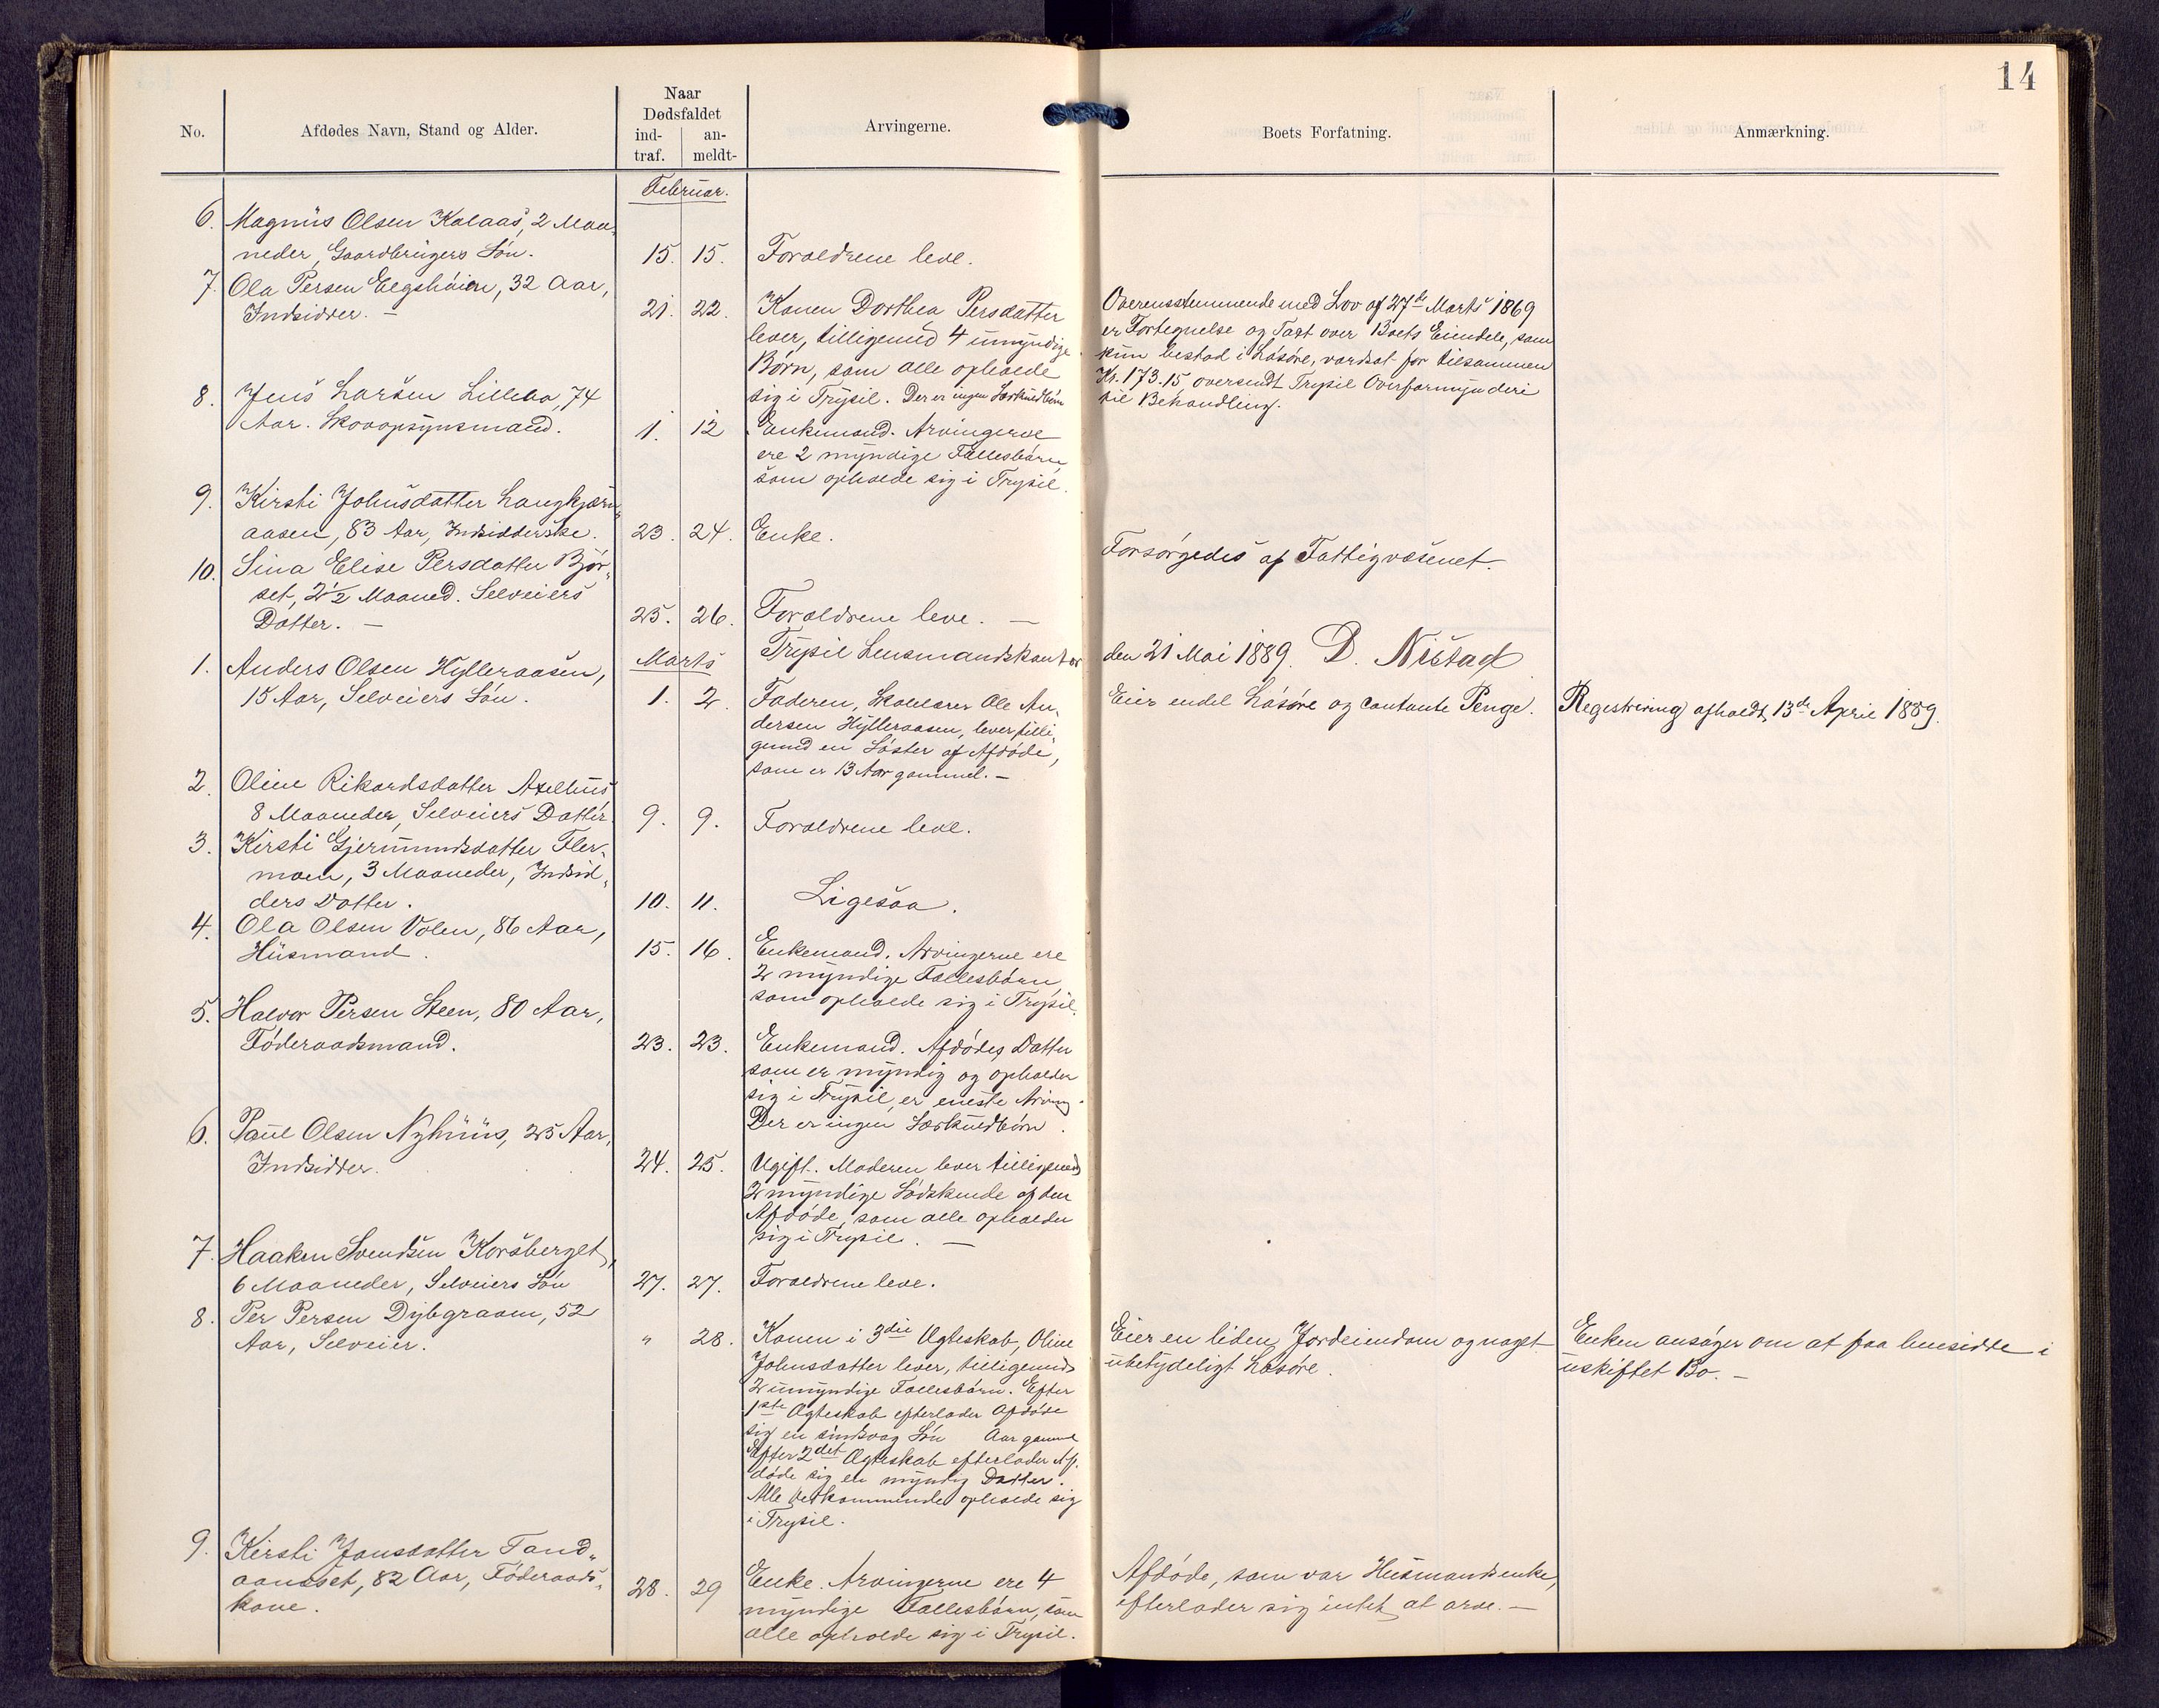 14
No.
Afdødes Navn, Stand og Alder.
Naar
Dødsfaldet
ind-
traf.
an-
meldt-
Arvingerne.
Boets Forfatning.
Anmærkning.
Februar.
6. Magnus Olsen Kolaas, 2 Maa-
neder, Gaardbrugers Søn. 15. 15. Forældrene leve.
7. Ola Persen Elgshøien, 32 Aar,
Indsidder. — 21. 22. Konen Dorthea Persdatter
lever, tilligemed 4 umyndige
Børn, som alle opholde
sig i Trysil. Der er ingen Særkuldbørn
Overensstemmende med Lov af 27de Marts 1869
er Fortegnelse og Taxt over Boets Eiendele, som
kun bestod i Løsøre, værdsat for tilsammen
Kr. 173.15 oversendt Trysil Overformynderi
til Behandling.
8. Jens Larsen Lillebo, 74
Aar. Skovopsynsmand. 1. 12 Enkemand. Arvingerne
ere 2 myndige Fællesbørn
som opholde sig i Trysil.
9. Kirsti Johnsdatter Langkjærn-
aasen, 83 Aar, Indsidderske. 23. 24. Enke.
Forsørgedes af Fattigvæsenet.
10. Sina Elise Persdatter Bjør-
set, 2 1/2 Maaned. Selveiers
Datter. — 25. 26. Forældrene leve. —
Trysil Lensmandskontor den 21 Mai 1889. D. Nistad
Marts
1. Anders Olsen Hylleraasen,
15 Aar, Selveiers Søn. 1. 2. Faderen, Skolelærer Ole An-
dersen Hylleraasen, lever tilli-
gemed en Søster af Afdøde,
som er 13 Aar gammel. —
Eier endel Løsøre og contante Penge. Registrering afholdt 13de April 1889.
2. Oline Rikardsdatter Axelhus
8 Maaneder, Selveiers Datter 9. 9. Forældrene leve.
3. Kirsti Gjermundsdatter Fler-
moen, 3 Maaneder, Indsid-
ders Datter. 10. 11. Ligesaa.
4. Ola Olsen Volen, 86 Aar,
Husmand. 15. 16. Enkemand. Arvingerne ere
2 myndige Fællesbørn,
som opholde sig i Trysil.
5. Halvor Persen Steen, 80 Aar,
Føderaadsmand. 23. 23. Enkemand. Afdødes Datter
som er myndig og opholder
sig i Trysil, er eneste Arving.
Der er ingen Særkuldbørn.
6. Paul Olsen Nyhuus, 25 Aar,
Indsidder. 24. 25. Ugift. Moderen lever tilligemed
2 myndige Sødskende af den
Afdøde, som alle opholder
sig i Trysil. —
7. Haaken Svendsen Korsberget,
6 Maaneder, Selveiers Søn 27. 27. Forældrene leve.
8. Per Persen Dybgraven, 52
Aar, Selveier. " 28. Konen i 3die Ægteskab, Oline
Johnsdatter lever, tilligemed
2 umyndige Fællesbørn. Efter
1ste Ægteskab efterlader Afdøde
sig en sindsvag Søn Aar gammel
Efter 2det Ægteskab efterlader Af-
døde sig en myndig Datter.
Alle Vedkommende opholde sig
i Trysil.
Eier en liden Jordeiendom og noget
ubetydeligt Løsøre.
Enken ansøger om at faa hensidde i
uskiftet Bo. —
9. Kirsti Jonsdatter Tand-
aaneset, 82 Aar, Føderaads-
kone. 28. 29 Enke. Arvingerne ere 4
myndige Fællesbørn, som
alle opholde sig i Trysil.
Afdøde, som var Husmandsenke,
efterlader sig intet at arve. —